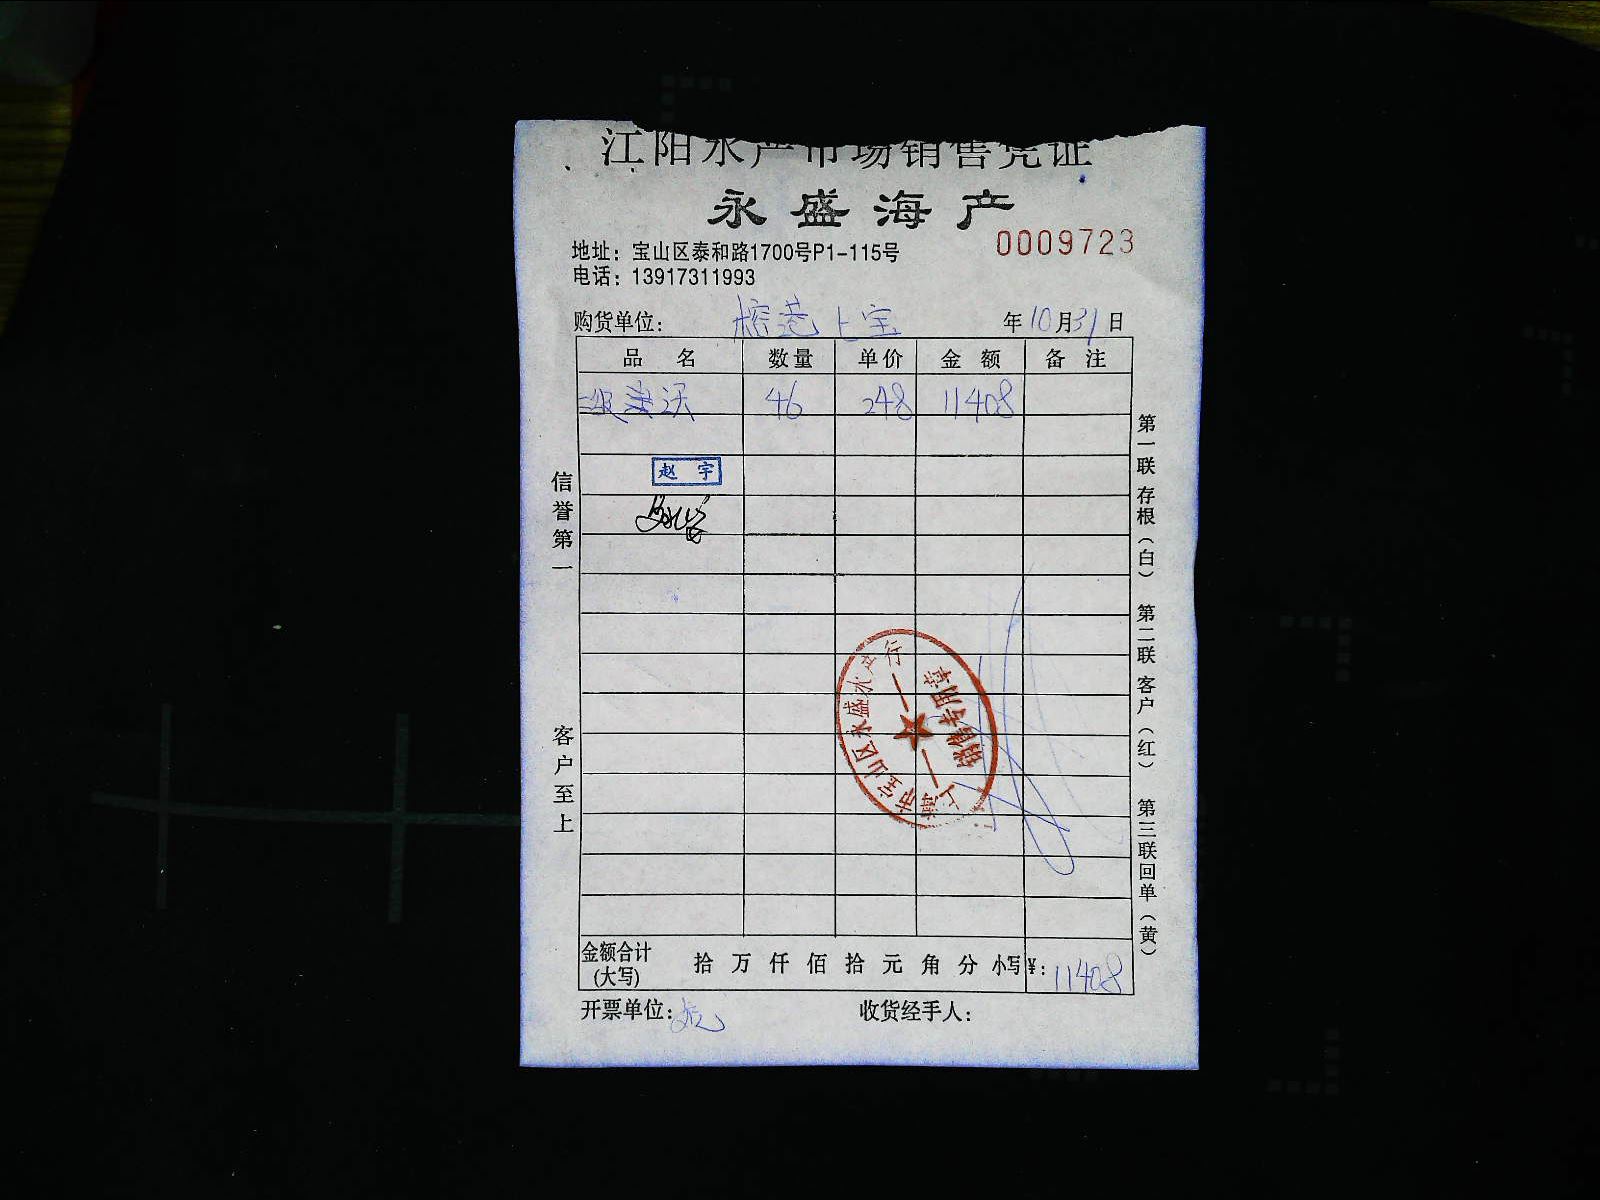 江阳水产市场销售凭证
永盛海产
0009723
地址：宝山区泰和路1700号P1-115号
电话：13917311993
购货单位： 榕港上宝 年10月31日
品 名 数量 单价 金 额 备 注
46 248 11408
赵 宇
信誉第一
客户至上
第一联 存根（白） 第二联 客户（红） 第三联 回单（黄）
上海市宝山区永盛水产行
销售专用章
金额合计（大写） 拾 万 仟 佰 拾 元 角 分 小写 ¥：11408
开票单位： 收货经手人：